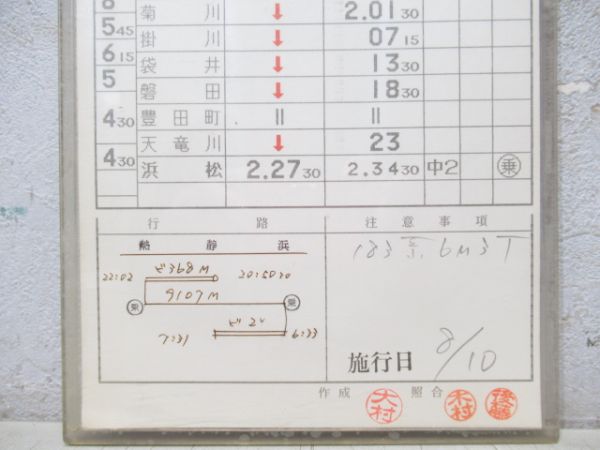 8 菊川 ↓ 2.01 30
5 45 掛川 ↓ 07 15
6 15 袋井 ↓ 13 30
5 磐田 ↓ 18 30
4 30 豊田町 || ||
天竜川 ↓ 23
4 30 浜松 2.27 30 2.34 30 中2 乗
行路 注意事項
熱 静 浜
ど368M
22:02 20:50 20
9107M
乗 乗
7:31 6:33
183系 6M3T
施行日 8/10
作成 大村 照合 木村 後藤